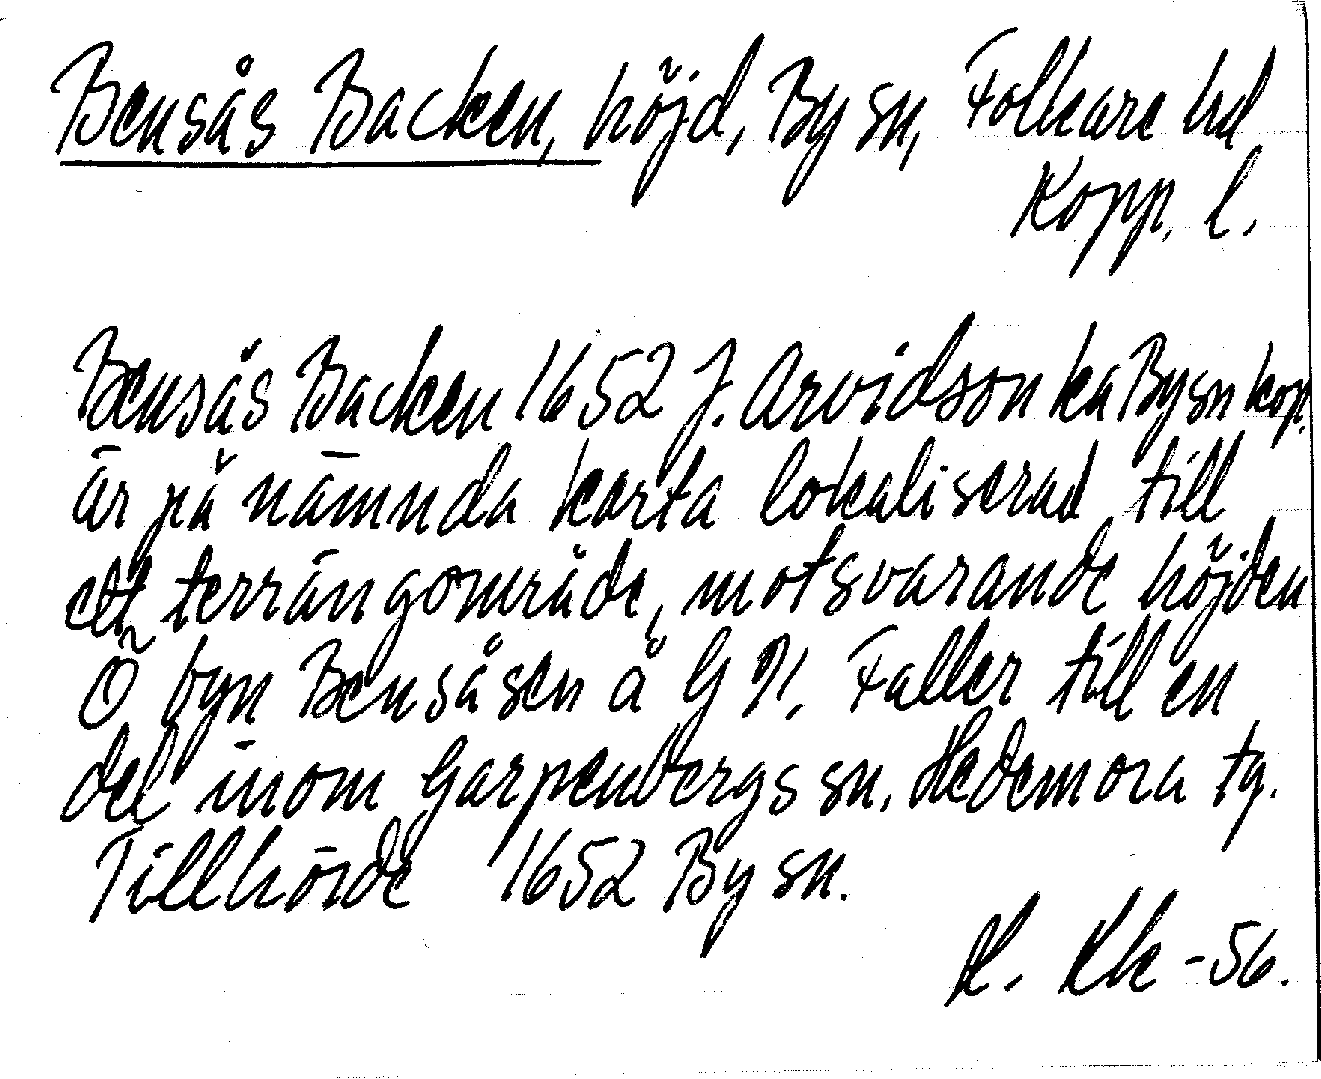 Bensås Backen, höjd, By sn, Folkare hd
Kopp. l.
Bensås Backen 1652 J. Arvidson ka By sn kop.
är på nämnda karta lokaliserad till
ett terrängområde, motsvarande höjden
Ö byn Bensåsen å GK. Faller till en
del inom Garpenbergs sn. Hedemora tg.
Tillhörde 1652 By sn.
-56.